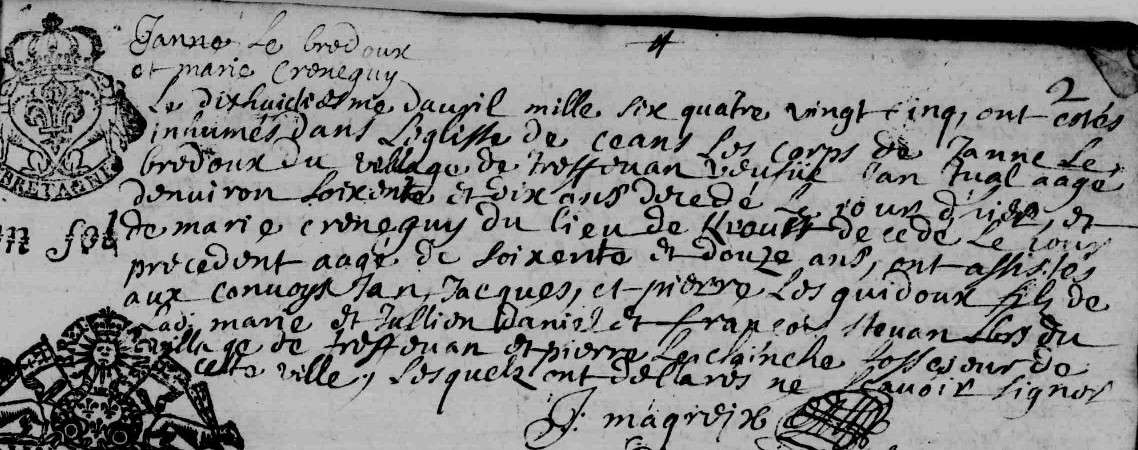 Janne Le bredoux
et marie Crenequy
2
Le dixhuictiesme dauril mille six quatre vingt cinq, ont estés
inhumés dans L'eglisse de ceans Les corps de Janne Le
bredoux du village de treffeuan veufue Ian tual aagé
denuiron soixente et dix ans decedé Le jour d'hier, et
de marie crenequy du lieu de decedé Le jour
precedent aagé de soixente et douze ans, ont assistés
aux convoys Jan, Jacques, et pierre Les quidoux fils de
Lad. marie et Jullien daniel et françois du
village de treffeuan et pierre fosseieur de
cette ville, Lesquelz ont dellarés ne scavoir signer
BRETAGNE
sol
J: magreix